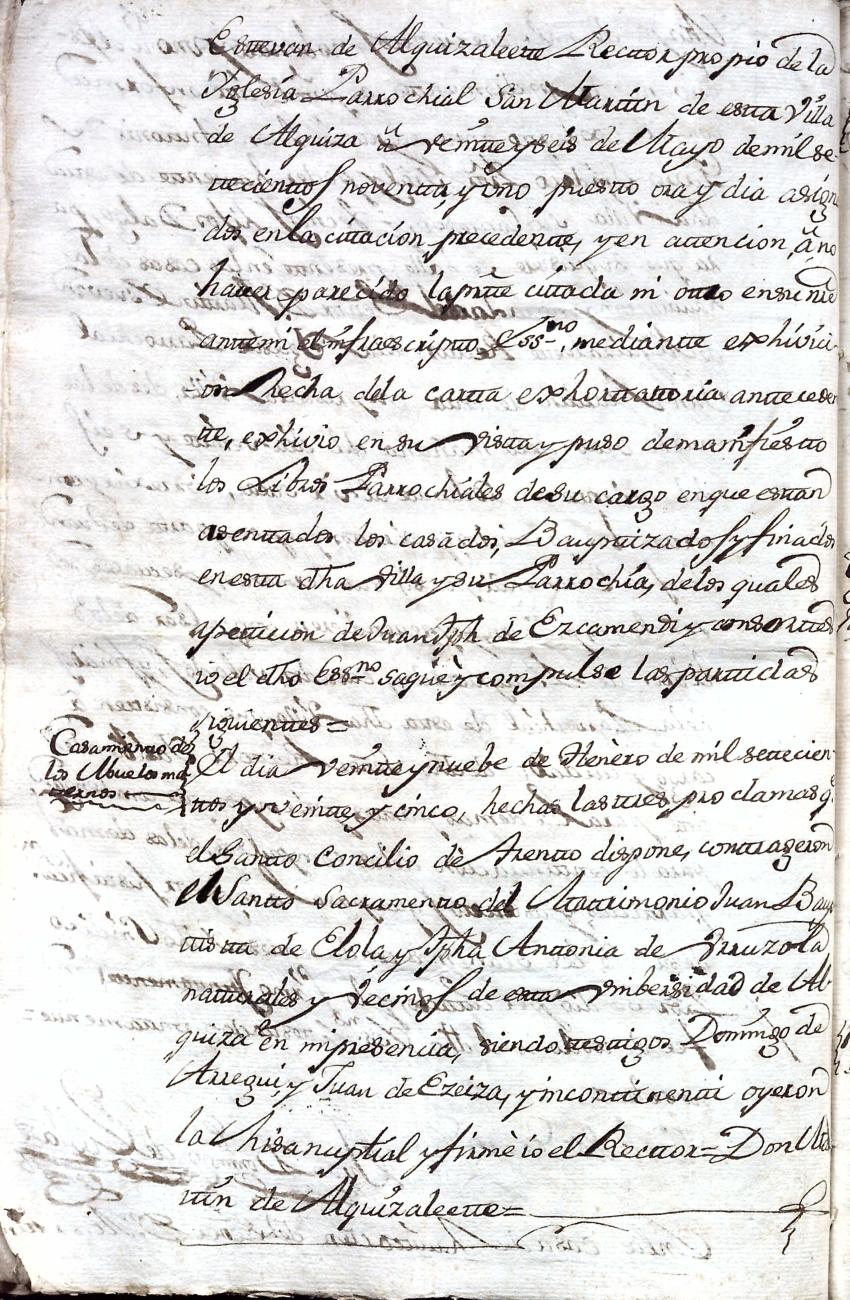 Estevan de Alquizaleete Recttor propio de la
Yglesía Parrochial San Martin de estta Villa
de Alquiza â veintte y seis de Mayo de mil se-
ttecienttos noventta, y uno puestto ora y dia asign
dos en la cittacíon precedentte, y en attencion, â no
haver parecido la pntte cittada ni ottro en su nre
antte mi el infraescriptto, Essno, mediantte exhívici-
on hecha de la cartta exhorttattoría antteceden
tte, exhivio en su vistta y puso de manifiestto
los Libros Parrochiales de su cargo en que esttan
asenttados los casados, Bauptizados y finados
en estta dha Villa y su Parrochia, de los quales
a petticion de Juan Jph de Ezcamendi y consorttes
io el dho Essno saquè y compulse las parttidas
siguienttes=
Casamentto de
los Abuelos ma
tternos
El dia veintte y nuebe de Henèro de mil settecien
ttos y veintte, y cinco, hechas las ttres proclamas q.e
el Santto Concilio de Trentto dispone, conttrageron
el Santto Sacramentto del Mattrimonio Juan Bap
ttistta de Elola y Jpha Anttonia de Urruzola
natturales y vecinos de estta Universidad de Al-
quiza en mi presencia, siendo ttesttigos Domingo de
Arregui, y Juan de Ezeiza, y inconttinentti oyeron
la Misa nuptial y firmè io el Recttor= Don Mar
ttin de Alquizaleette=